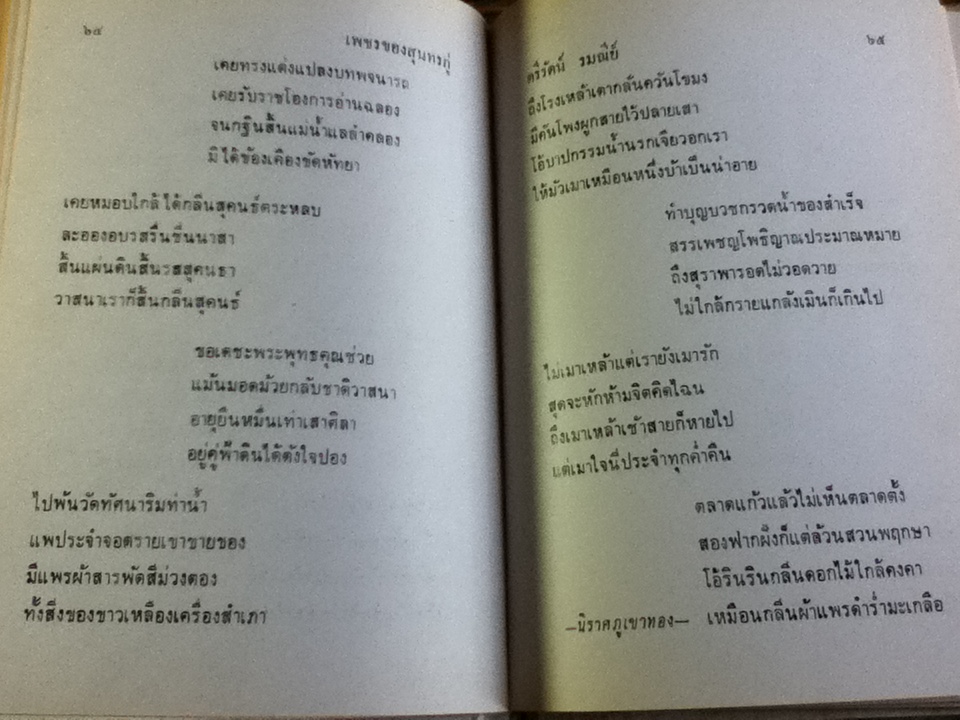 ๒๔
เพชรของสุนทรภู่
เคยทรงแต่งแปลงบทพจนารถ
เคยรับราชโองการอ่านฉลอง
จนกฐินสิ้นแม่น้ำแลลำคลอง
มิได้ข้องเคืองขัดหัทยา
เคยหมอบใกล้ได้กลิ่นสุคนธ์ตระหลบ
ละอองอบรสรื่นชื่นนาสา
สิ้นแผ่นดินสิ้นรสสุคนธา
วาสนาเราก็สิ้นกลิ่นสุคนธ์
ขอเดชะพระพุทธคุณช่วย
แม้นมอดม้วยกลับชาติวาสนา
อายุยืนหมื่นเท่าเสาศิลา
อยู่คู่ฟ้าดินได้ดังใจปอง
ไปพ้นวัดทัศนาริมท่าน้ำ
แพประจำจอดรายเขาขายของ
มีแพรผ้าสารพัดสีม่วงตอง
ทั้งสิ่งของขาวเหลืองเครื่องสำเภา
ตรีรัตน์ รมณีย์
๒๕
ถึงโรงเหล้าเตากลั่นควันโขมง
มีคันโพงผูกสายไว้ปลายเสา
โอ้บาปกรรมน้ำนรกเจียวอกเรา
ให้มัวเมาเหมือนหนึ่งบ้าเป็นน่าอาย
ทำบุญบวชกรวดน้ำขอสำเร็จ
สรรเพชญโพธิญาณประมาณหมาย
ถึงสุราพารอดไม่วอดวาย
ไม่ใกล้กรายแกล้งเมินก็เกินไป
ไม่เมาเหล้าแต่เรายังเมารัก
สุดจะหักห้ามจิตคิดไฉน
ถึงเมาเหล้าเช้าสายก็หายไป
แต่เมาใจนี้ประจำทุกค่ำคืน
ตลาดแก้วแล้วไม่เห็นตลาดตั้ง
สองฟากฝั่งก็แต่ล้วนสวนพฤกษา
โอ้รินรินกลิ่นดอกไม้ใกล้คงคา
เหมือนกลิ่นผ้าแพรดำร่ำมะเกลือ
—นิราศภูเขาทอง—